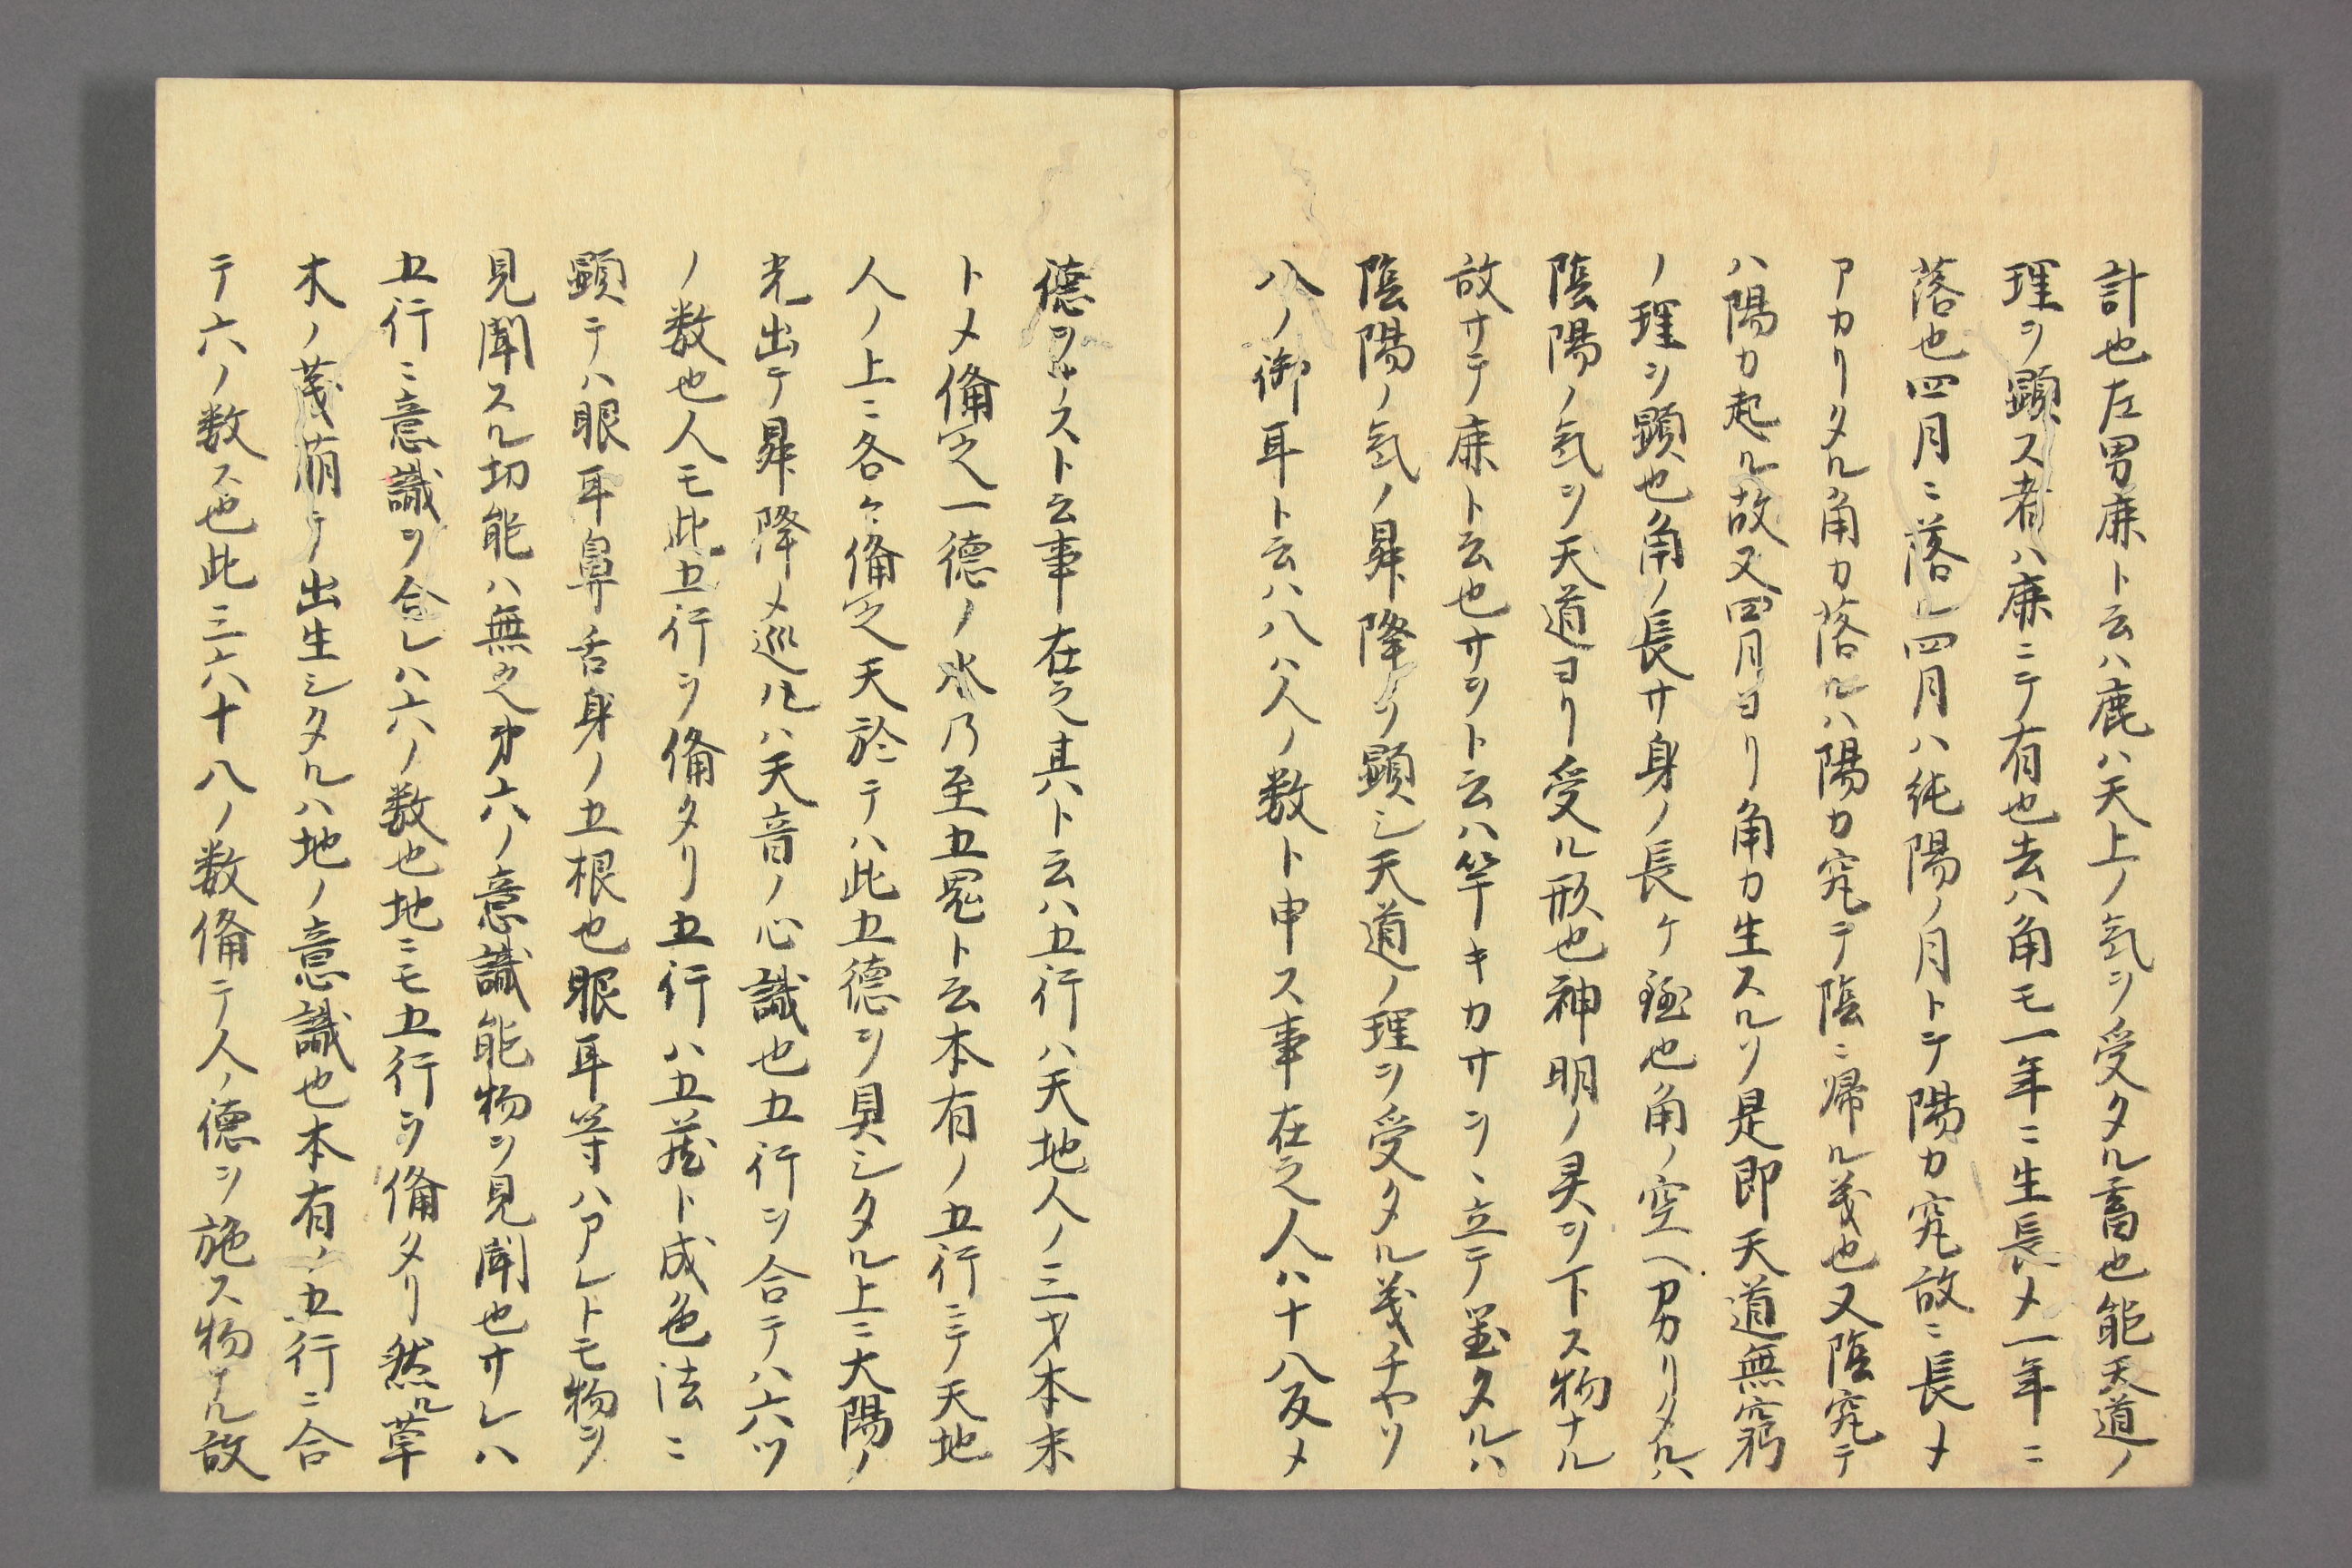 計也左男廉ト云ハ鹿ハ天上ノ気ヲ受タル畜也能天道ノ
理ヲ顕ス者ハ廉ニテ有也去ハ角モ一年ニ生長メ一年ニ
落也四月ニ落ル四月ハ純陽ノ月トテ陽カ究故ニ長メ
アカリタル角カ落ルハ陽カ究テ陰ニ帰ル義也又陰究テ
ハ陽カ起ル故又四月ヨリ角カ生スルソ是即天道無窮
ノ理ヲ顕也角ノ長サ身ノ長ケ也角ノ空ヘアカリタルハ
陰陽ノ気ヲ天道ヨリ受ル形也神明ノ灵ヲ下ス物ナル
故サテ廉ト云也サヲト云ハ竿キカサヲヽ立テ置タルハ
陰陽ノ気ノ昇降ヲ顕シ天道ノ理ヲ受タル義チヤソ
八ノ御耳ト云ハ八ハ人ノ数ト申ス事在之人ハ十八反メ
徳ヲナスト云事在之其ト云ハ五行ハ天地人ノ三才本末
トメ備之一徳ノ水乃至五鬼ト云本有ノ五行ニテ天地
人ノ上ニ各々備之天於テハ此五徳ヲ具シタル上ニ大陽ノ
光出テ昇降メ巡ルハ天音ノ心識也五行ヲ合テハ六ツ
ノ数也人モ此五行ヲ備タリ五行ハ五蔵ト成色法ニ
顕テハ眼耳鼻舌身ノ五根也眼耳等ハアレトモ物ヲ
見聞スル切能ハ無之才六ノ意識能物ヲ見聞也サレハ
五行ニ意識ヲ合レハ六ノ数也地ニモ五行ヲ備タリ然ルニ草
木ノ茂萠テ出生シタルハ地ノ意識也本有ノ五行ニ合
テ六ノ数ス也此三六十八ノ数備テ人ノ徳ヲ施ス物ナル故